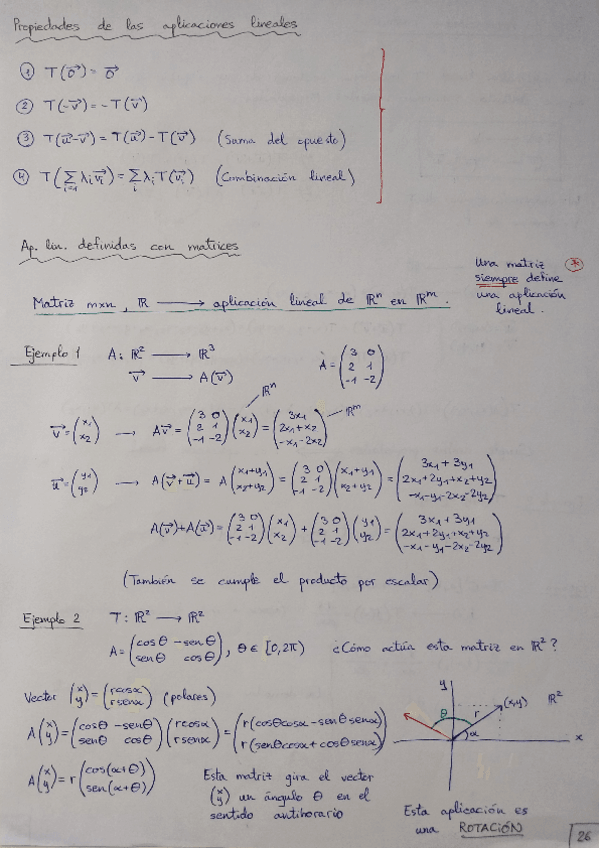 Propiedades de las aplicaciones lineales
① T(0⃗) = 0⃗
② T(-v⃗) = -T(v⃗)
③ T(u⃗-v⃗) = T(u⃗) - T(v⃗) (Suma del opuesto)
④ T(∑i=1 λi v⃗i) = ∑i λi T(v⃗i) (Combinación lineal)
Ap. lin. definidas con matrices
Una matriz *
siempre define
una aplicación
lineal.
Matriz mxn, ℝ ⟶ aplicación lineal de ℝⁿ en ℝᵐ.
Ejemplo 1 A: ℝ² ⟶ ℝ³ A = (3 0; 2 1; -1 -2)
v⃗ ⟶ A(v⃗)
ℝⁿ ℝᵐ
v⃗ = (x1; x2) → Av⃗ = (3 0; 2 1; -1 -2)(x1; x2) = (3x1; 2x1+x2; -x1-2x2)
u⃗ = (y1; y2) → A(v⃗+u⃗) = A(x1+y1; x2+y2) = (3 0; 2 1; -1 -2)(x1+y1; x2+y2) = (3x1+3y1; 2x1+2y1+x2+y2; -x1-y1-2x2-2y2)
A(v⃗)+A(u⃗) = (3 0; 2 1; -1 -2)(x1; x2) + (3 0; 2 1; -1 -2)(y1; y2) = (3x1+3y1; 2x1+2y1+x2+y2; -x1-y1-2x2-2y2)
(También se cumple el producto por escalar)
Ejemplo 2 T: ℝ² ⟶ ℝ²
A = (cosθ -senθ; senθ cosθ), θ∈[0,2π) ¿Cómo actúa esta matriz en ℝ²?
Vector (x; y) = (rcosα; rsenα) (polares)
A(x; y) = (cosθ -senθ; senθ cosθ)(rcosα; rsenα) = (r(cosθcosα-senθsenα); r(senθcosα+cosθsenα))
A(x; y) = r(cos(α+θ); sen(α+θ))
Esta matriz gira el vector
(x; y) un ángulo θ en el
sentido antihorario
y
(x,y) ℝ²
θ r
α x
Esta aplicación es
una ROTACIÓN
26